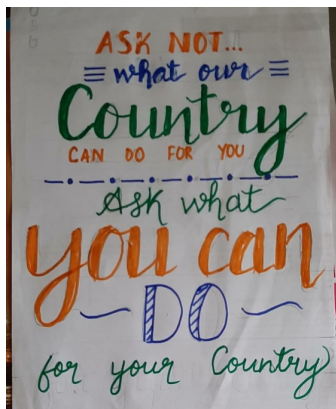 ASK NOT...
what our
Country
CAN DO FOR YOU
Ask what
you can
DO
for your Country